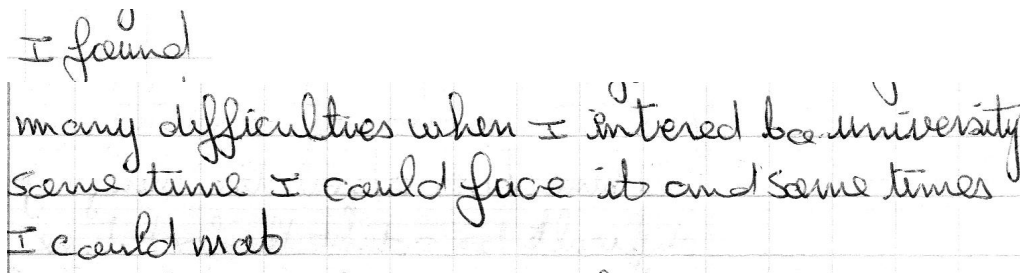 I found
many difficulties when I intered to university
some time I could face it and some times
I could not